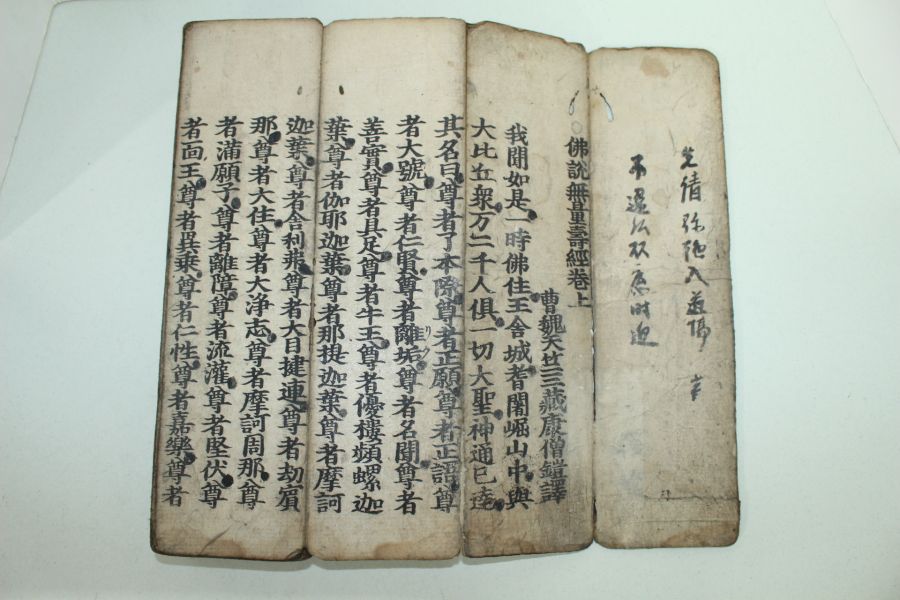 佛說無量壽經卷上
曹魏天竺三藏康僧鎧譯
我聞如是一時佛住王舍城耆闍崛山中與
大比丘衆万二千人俱一切大聖神通已達
其名曰尊者了本際尊者正願尊者正語尊
者大號尊者仁賢尊者離垢尊者名聞尊者
善實尊者具足尊者牛王尊者優樓頻螺迦
葉尊者伽耶迦葉尊者那提迦葉尊者摩訶
迦葉尊者舍利弗尊者大目揵連尊者劫賓
那尊者大住尊者大浄志尊者摩訶周那尊
者滿願子尊者離障尊者流灌尊者堅伏尊
者面王尊者異乘尊者仁性尊者嘉樂尊者